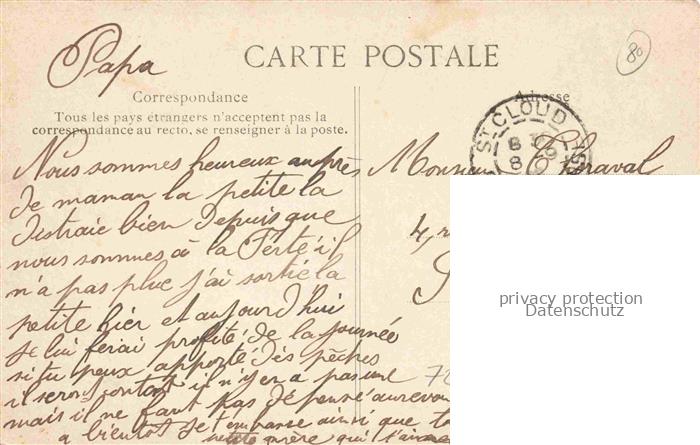 Papa
CARTE POSTALE
80
Correspondance
Adresse
Tous les pays étrangers n'acceptent pas la
correspondance au recto, se renseigner à la poste.
ST CLOUD
Nous sommes heureux auprès
de maman la petite la
distraie bien depuis que
nous sommes à la Ferté il
n'a pas plue j'ai sortie la
petite hier et aujourd'hui
je lui ferai profité de la journée
si tu peux apporté des pêches
il seront il n'y en a pas une
mais il ne faut pas de pensé aurevoir
a bientôt je t'embrasse ainsi que
petite mère qui t'aime
Monsieur
4, r
privacy protection
Datenschutz